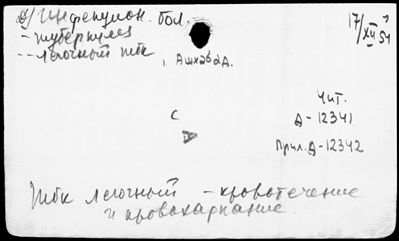 д/ Инфекцион. бол.
- туберкулез
-- легочный тбк
17/XII 51
г. Ашхабад.
Чит.
Д-12341
С
Прил. Д-12342
Тбк легочный - кровотечение
и кровохаркание.